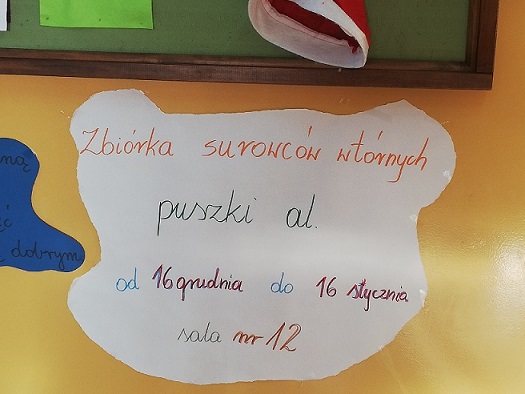 Zbiórka surowców wtórnych
puszki al.
od 16 grudnia do 16 stycznia
sala nr 12
dobrym